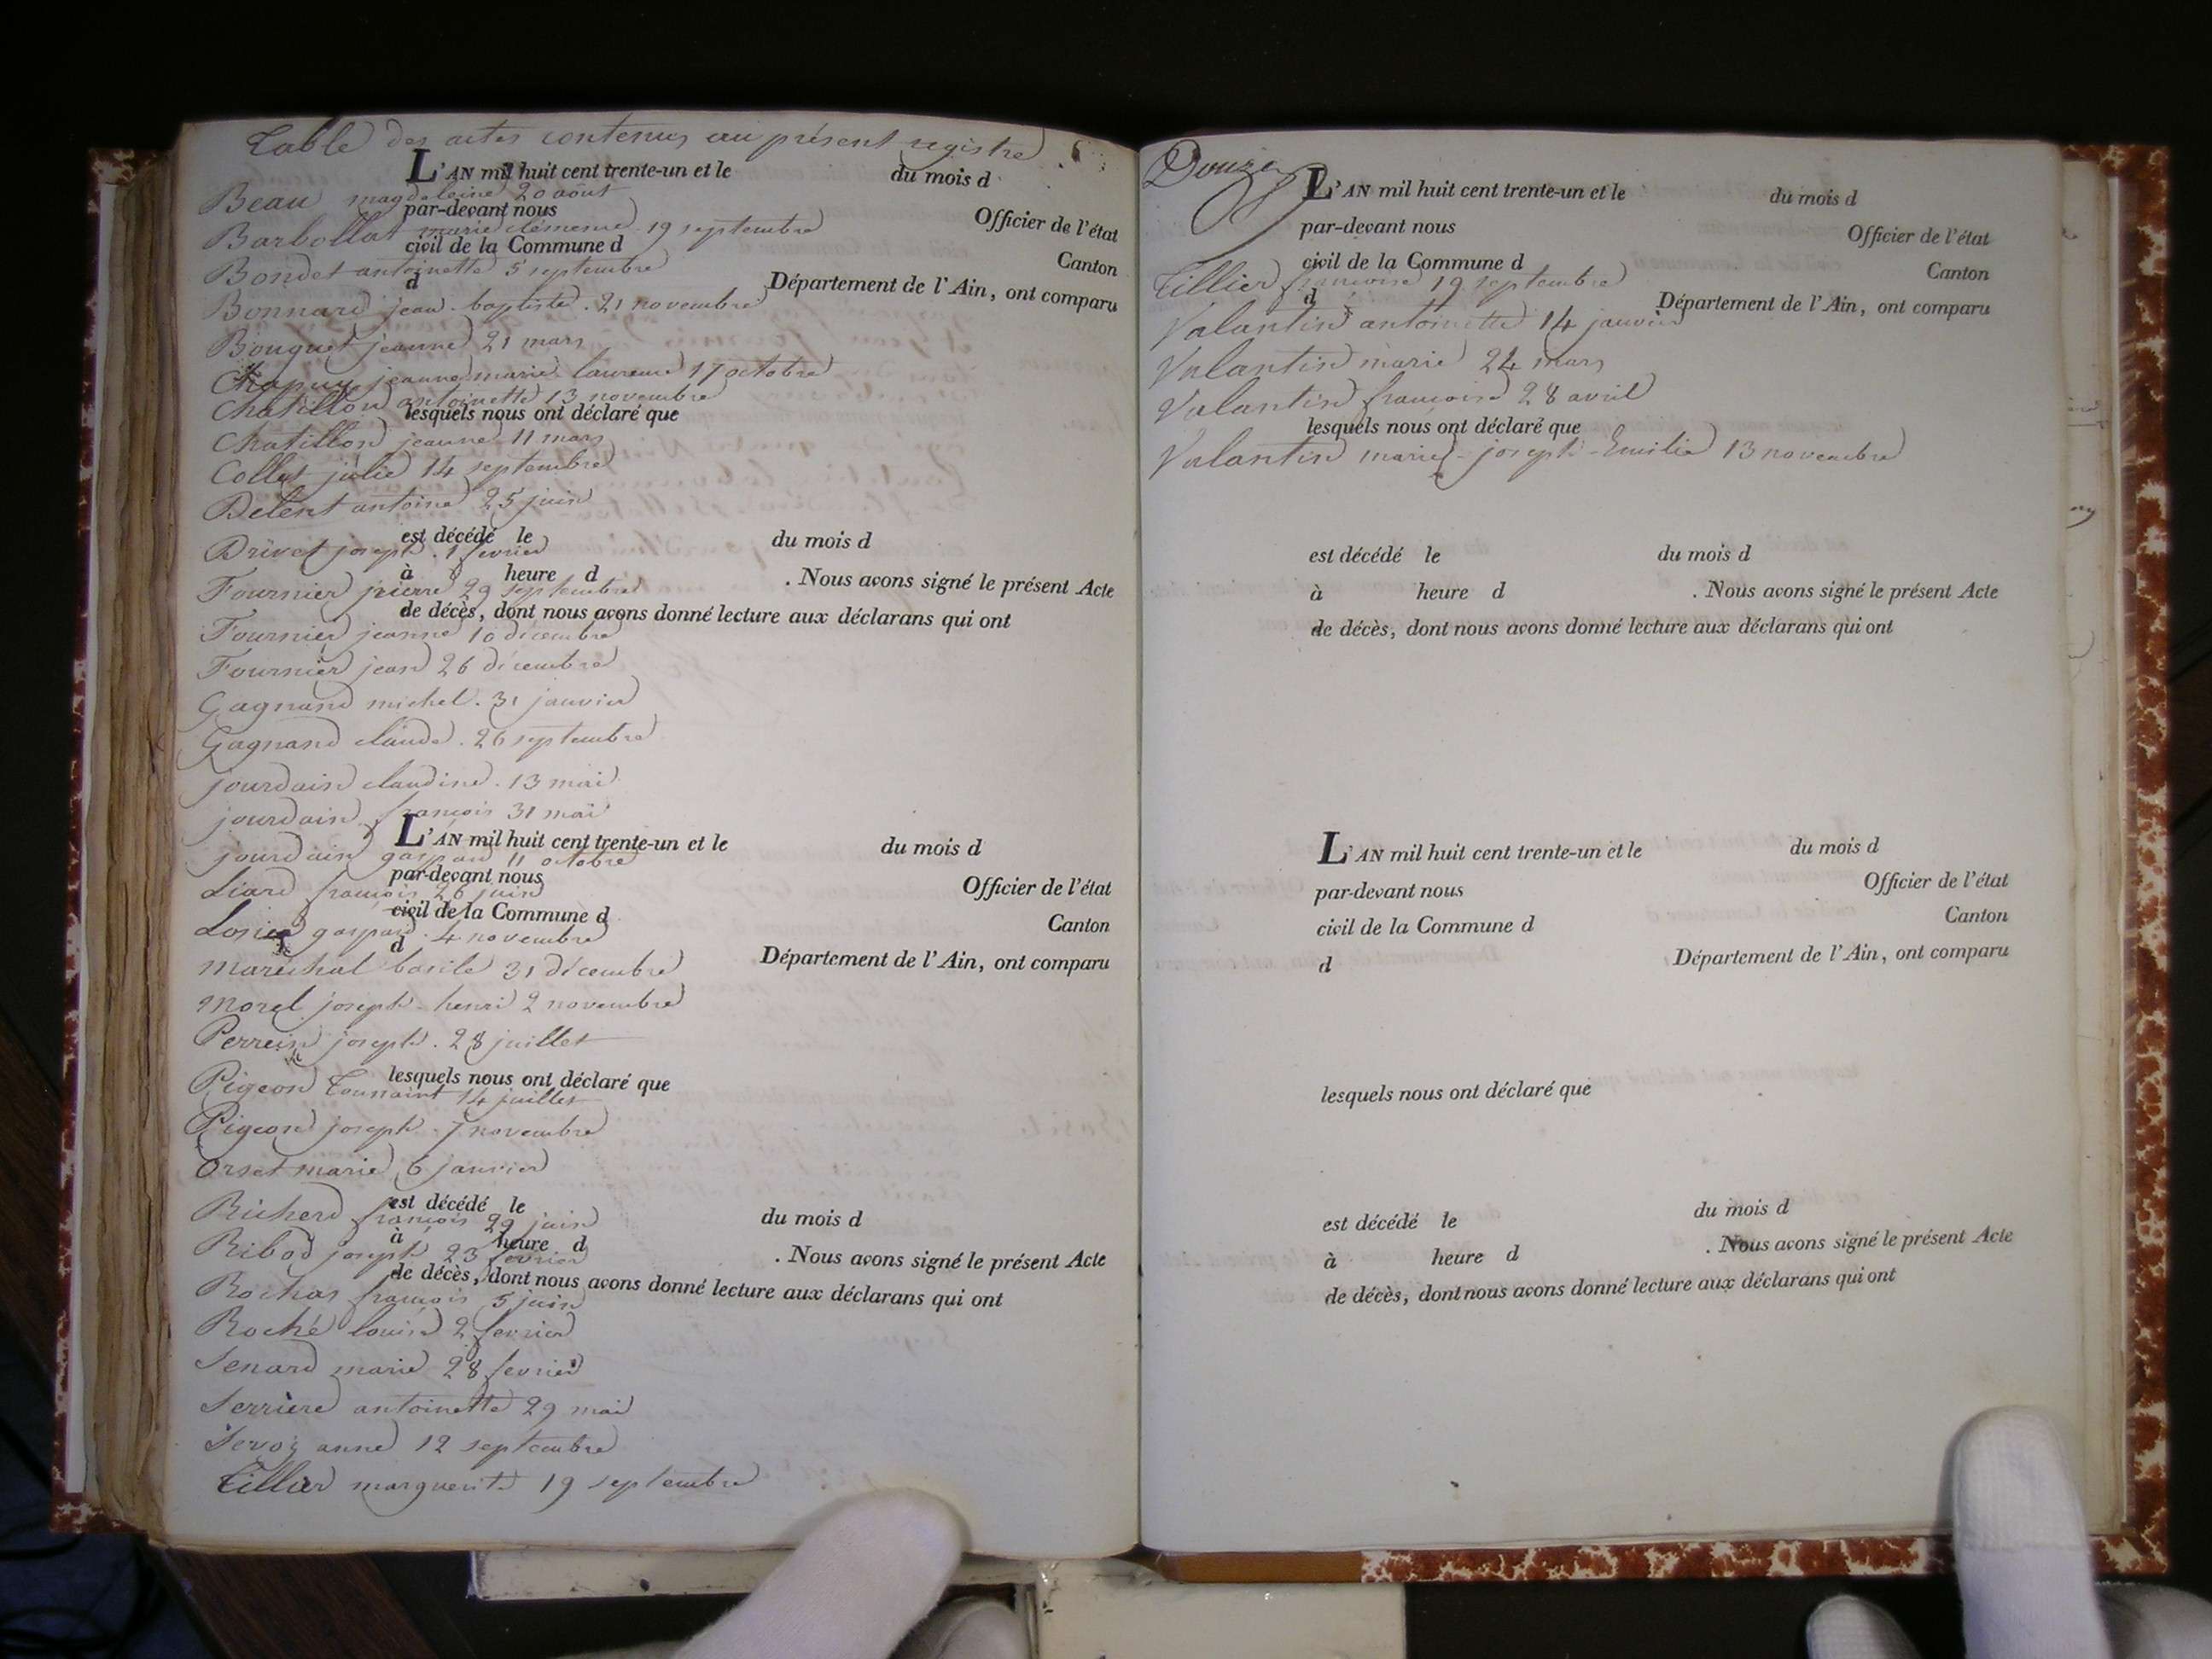 Table des actes contenus au présent registre
L'AN mil huit cent trente-un et le du mois d
Beau magdeleine 20 août
par-devant nous Officier de l'état
Barbollat marie clémence 19 septembre
civil de la Commune d Canton
Bondet antoinette 5 septembre
d Département de l'Ain, ont comparu
Bonnard jean-baptiste. 21 novembre
Bouquet jeanne 21 mars
Chapuy jeanne marie laurence 17 octobre
Chatillon antoinette 13 novembre
lesquels nous ont déclaré que
Chatillon jeanne 11 mars
Collet julie 14 septembre
Delent antoine 25 juin
est décédé le du mois d
Drivet joseph. 1 fevrier
à heure d . Nous avons signé le présent Acte
Fournier pierre 29 septembre
de décès, dont nous avons donné lecture aux déclarans qui ont
Fournier jeanne 10 décembre
Fournier jean 26 décembre
Gagnand michel. 31 janvier
Gagnand claude. 26 septembre
jourdain claudine. 13 mai
jourdain françois 31 mai
L'AN mil huit cent trente-un et le du mois d
jourdain gaspard 11 octobre
par-devant nous Officier de l'état
Liard françois 26 juin
civil de la Commune d Canton
gaspard. 4 novembre
d Département de l'Ain, ont comparu
maréchal basile 31 décembre
morel joseph-henri 2 novembre
Perrein joseph. 28 juillet
lesquels nous ont déclaré que
Pigeon Toussaint 14 juillet
Pigeon joseph. 7 novembre
Orset marie 6 janvier
est décédé le du mois d
Richerd françois 29 juin
à heure d . Nous avons signé le présent Acte
Ribod joseph 23 fevrier
de décès, dont nous avons donné lecture aux déclarans qui ont
Rochas françois 5 juin
Roché louise 2 fevrier
Senard marie 28 fevrier
Serrière antoinette 29 mai
Servoz anne 12 septembre
Tillier marguerite 19 septembre
Douze
L'AN mil huit cent trente-un et le du mois d
par-devant nous Officier de l'état
civil de la Commune d Canton
Tillier françoise 19 septembre
d Département de l'Ain, ont comparu
Valantin antoinette 14 janvier
Valantin marie 24 mars
Valantin françoise 28 avril
lesquels nous ont déclaré que
Valantin marie-joseph-Emilie 13 novembre
est décédé le du mois d
à heure d . Nous avons signé le présent Acte
de décès, dont nous avons donné lecture aux déclarans qui ont
L'AN mil huit cent trente-un et le du mois d
par-devant nous Officier de l'état
civil de la Commune d Canton
d Département de l'Ain, ont comparu
lesquels nous ont déclaré que
est décédé le du mois d
à heure d . Nous avons signé le présent Acte
de décès, dont nous avons donné lecture aux déclarans qui ont